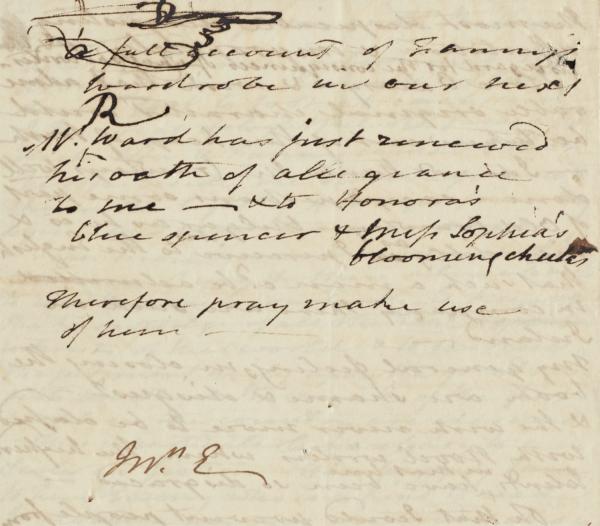 a full account of Fanny's
wardrobe in our next
R
Mr. Ward has just renewed
his oath of allegiance
to me — & to Honora's
blue spencer & Miss Sophia's
blooming cheeks
Therefore pray make use
of him —
Wm E